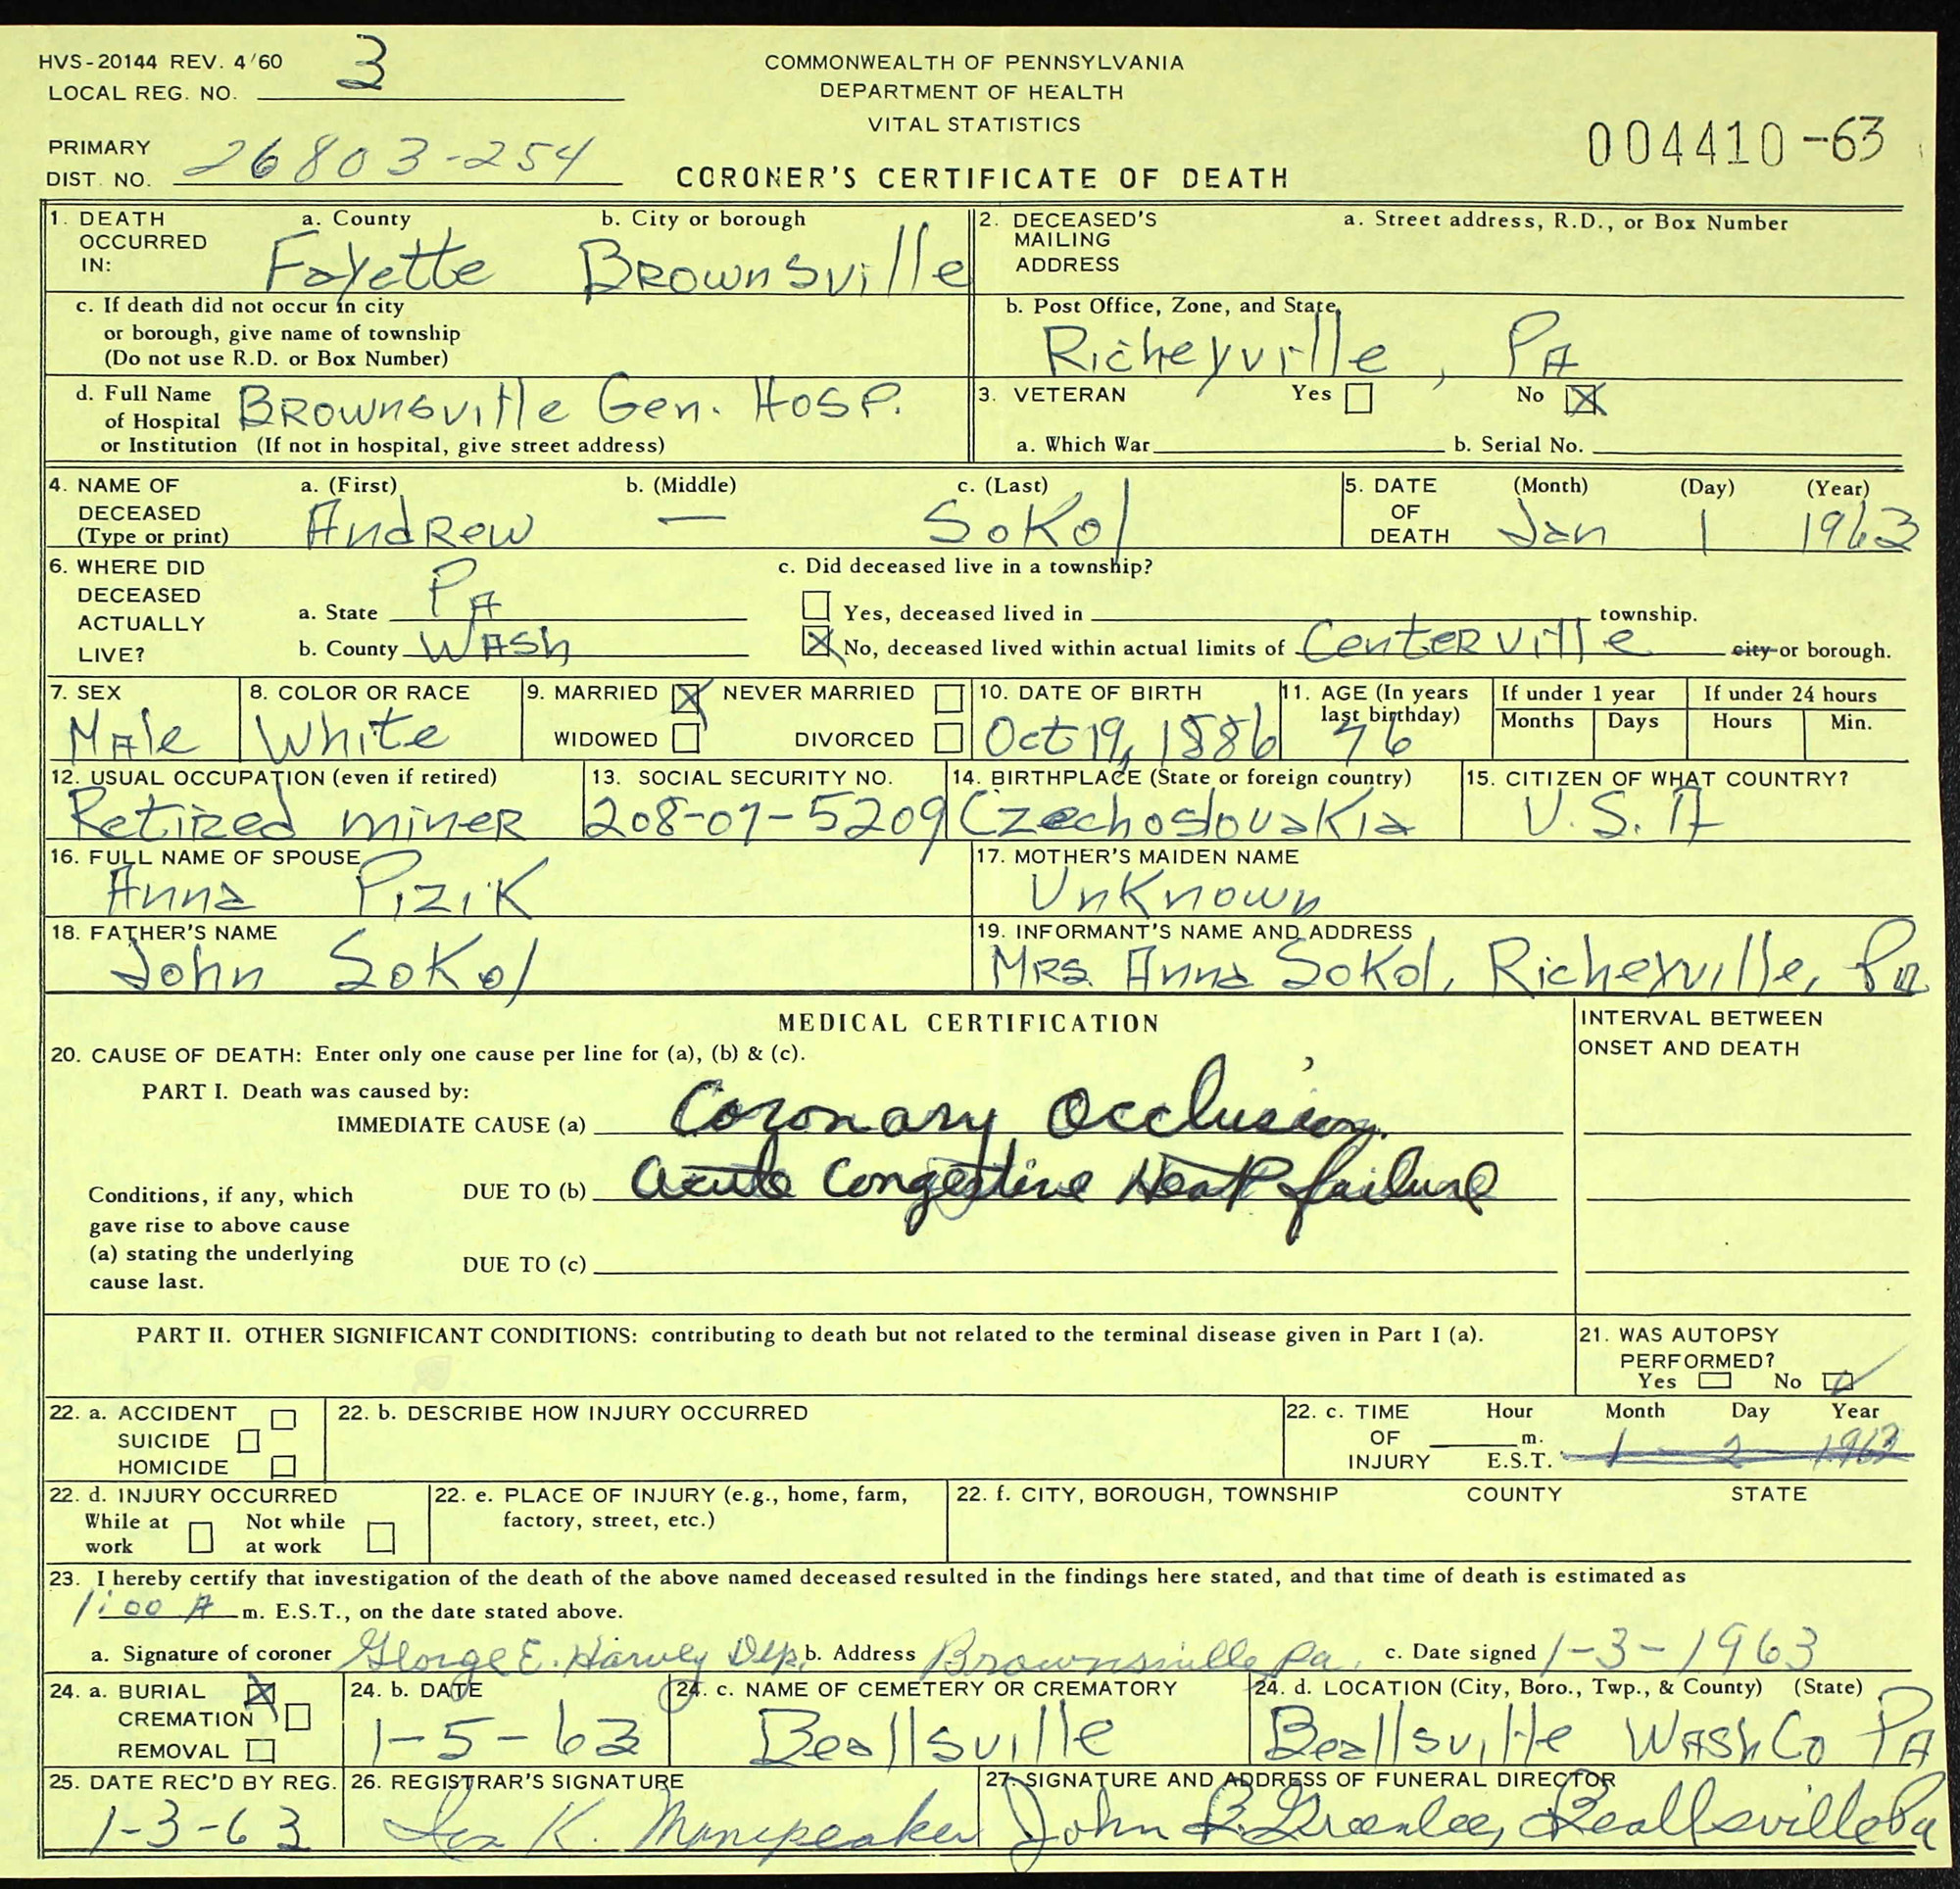 HVS-20144 REV. 4/60
LOCAL REG. NO. 3
COMMONWEALTH OF PENNSYLVANIA
DEPARTMENT OF HEALTH
VITAL STATISTICS
PRIMARY
DIST. NO. 26803-254
CORONER'S CERTIFICATE OF DEATH
004410-63
1. DEATH OCCURRED IN:
a. County
Fayette
b. City or borough
Brownsville
2. DECEASED'S MAILING ADDRESS
a. Street address, R.D., or Box Number
c. If death did not occur in city
or borough, give name of township
(Do not use R.D. or Box Number)
b. Post Office, Zone, and State
Richeyville, PA
d. Full Name
of Hospital Brownsville Gen. Hosp.
or Institution (If not in hospital, give street address)
3. VETERAN Yes No X
a. Which War b. Serial No.
4. NAME OF DECEASED (Type or print)
a. (First) b. (Middle) c. (Last)
Andrew — Sokol
5. DATE OF DEATH
(Month) (Day) (Year)
Jan 1 1963
6. WHERE DID DECEASED ACTUALLY LIVE?
a. State PA
b. County Wash
c. Did deceased live in a township?
Yes, deceased lived in township.
X No, deceased lived within actual limits of Centerville city or borough.
7. SEX
Male
8. COLOR OR RACE
White
9. MARRIED X NEVER MARRIED
WIDOWED DIVORCED
10. DATE OF BIRTH
Oct 19, 1886
11. AGE (In years
last birthday)
76
If under 1 year
Months Days
If under 24 hours
Hours Min.
12. USUAL OCCUPATION (even if retired)
Retired miner
13. SOCIAL SECURITY NO.
208-07-5209
14. BIRTHPLACE (State or foreign country)
Czechoslovakia
15. CITIZEN OF WHAT COUNTRY?
U.S.A
16. FULL NAME OF SPOUSE
Anna Pizik
17. MOTHER'S MAIDEN NAME
Unknown
18. FATHER'S NAME
John Sokol
19. INFORMANT'S NAME AND ADDRESS
Mrs. Anna Sokol, Richeyville, Pa
MEDICAL CERTIFICATION
INTERVAL BETWEEN
ONSET AND DEATH
20. CAUSE OF DEATH: Enter only one cause per line for (a), (b) & (c).
PART I. Death was caused by:
IMMEDIATE CAUSE (a) Coronary Occlusion
Conditions, if any, which
gave rise to above cause
(a) stating the underlying
cause last.
DUE TO (b) Acute Congestive Heart failure
DUE TO (c)
PART II. OTHER SIGNIFICANT CONDITIONS: contributing to death but not related to the terminal disease given in Part I (a).
21. WAS AUTOPSY
PERFORMED?
Yes No
22. a. ACCIDENT
SUICIDE
HOMICIDE
22. b. DESCRIBE HOW INJURY OCCURRED
22. c. TIME OF INJURY
Hour Month Day Year
m.
E.S.T. 1 2 1963
22. d. INJURY OCCURRED
While at work Not while at work
22. e. PLACE OF INJURY (e.g., home, farm,
factory, street, etc.)
22. f. CITY, BOROUGH, TOWNSHIP COUNTY STATE
23. I hereby certify that investigation of the death of the above named deceased resulted in the findings here stated, and that time of death is estimated as
1:00 A m. E.S.T., on the date stated above.
a. Signature of coroner George E. Harvey Dep. b. Address Brownsville Pa. c. Date signed 1-3-1963
24. a. BURIAL X
CREMATION
REMOVAL
24. b. DATE
1-5-63
24. c. NAME OF CEMETERY OR CREMATORY
Beallsville
24. d. LOCATION (City, Boro., Twp., & County) (State)
Beallsville Wash Co PA
25. DATE REC'D BY REG.
1-3-63
26. REGISTRAR'S SIGNATURE
K.
27. SIGNATURE AND ADDRESS OF FUNERAL DIRECTOR
John B. Greenlee, Beallsville Pa